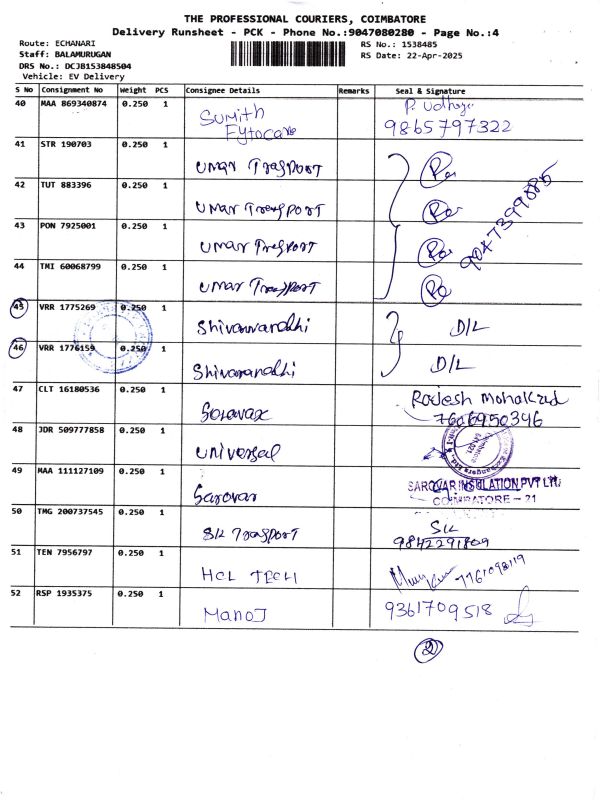 THE PROFESSIONAL COURIERS, COIMBATORE
Delivery Runsheet - PCK - Phone No.:9047080280 - Page No.:4
Route: ECHANARI
RS No.: 1538485
Staff: BALAMURUGAN
RS Date: 22-Apr-2025
DRS No.: DCJB153848504
Vehicle: EV Delivery
S No Consignment No Weight PCS Consignee Details Remarks Seal & Signature
40 MAA 869340874 0.250 1 Sumith Fytocare P. Udhaya 9865797322
41 STR 190703 0.250 1 Umar Trasport
42 TUT 883396 0.250 1 Umar Transport
43 PON 7925001 0.250 1 Umar Trasport
44 TMI 60068799 0.250 1 Umar Trasport
9047399885
45 VRR 1775269 0.250 1 Shivanandhi D/L
46 VRR 1776159 0.250 1 Shivanandhi D/L
47 CLT 16180536 0.250 1 Rajesh 7606950346
48 JDR 509777858 0.250 1 Universal
49 MAA 111127109 0.250 1 Sarovar SAROVAR INSULATION PVT LTD
COIMBATORE - 21
50 TMG 200737545 0.250 1 SK Trasport SK 9842291809
51 TEN 7956797 0.250 1 HCL TECH
52 RSP 1935375 0.250 1 Manoj 9361709518
2